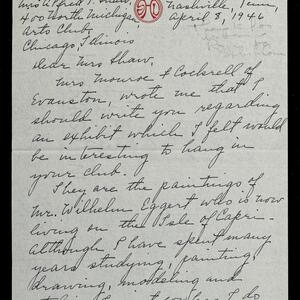 Mrs Alfred P. Shaw, Nashville, Tenn,
400 North Michigan, April 8, 1946
Arts Club,
Chicago, Illinois
Dear Mrs Shaw,
Mrs Monroe J. Cockrell of
Evanston, wrote me that I
should write you regarding
an exhibit which I felt would
be interesting to hang in
your club.
They are the paintings of
Mr. Wilhelm Eggert who is now
living on the Isle of Capri-
Although I have spent many
years studying, painting,
drawing, modeling and